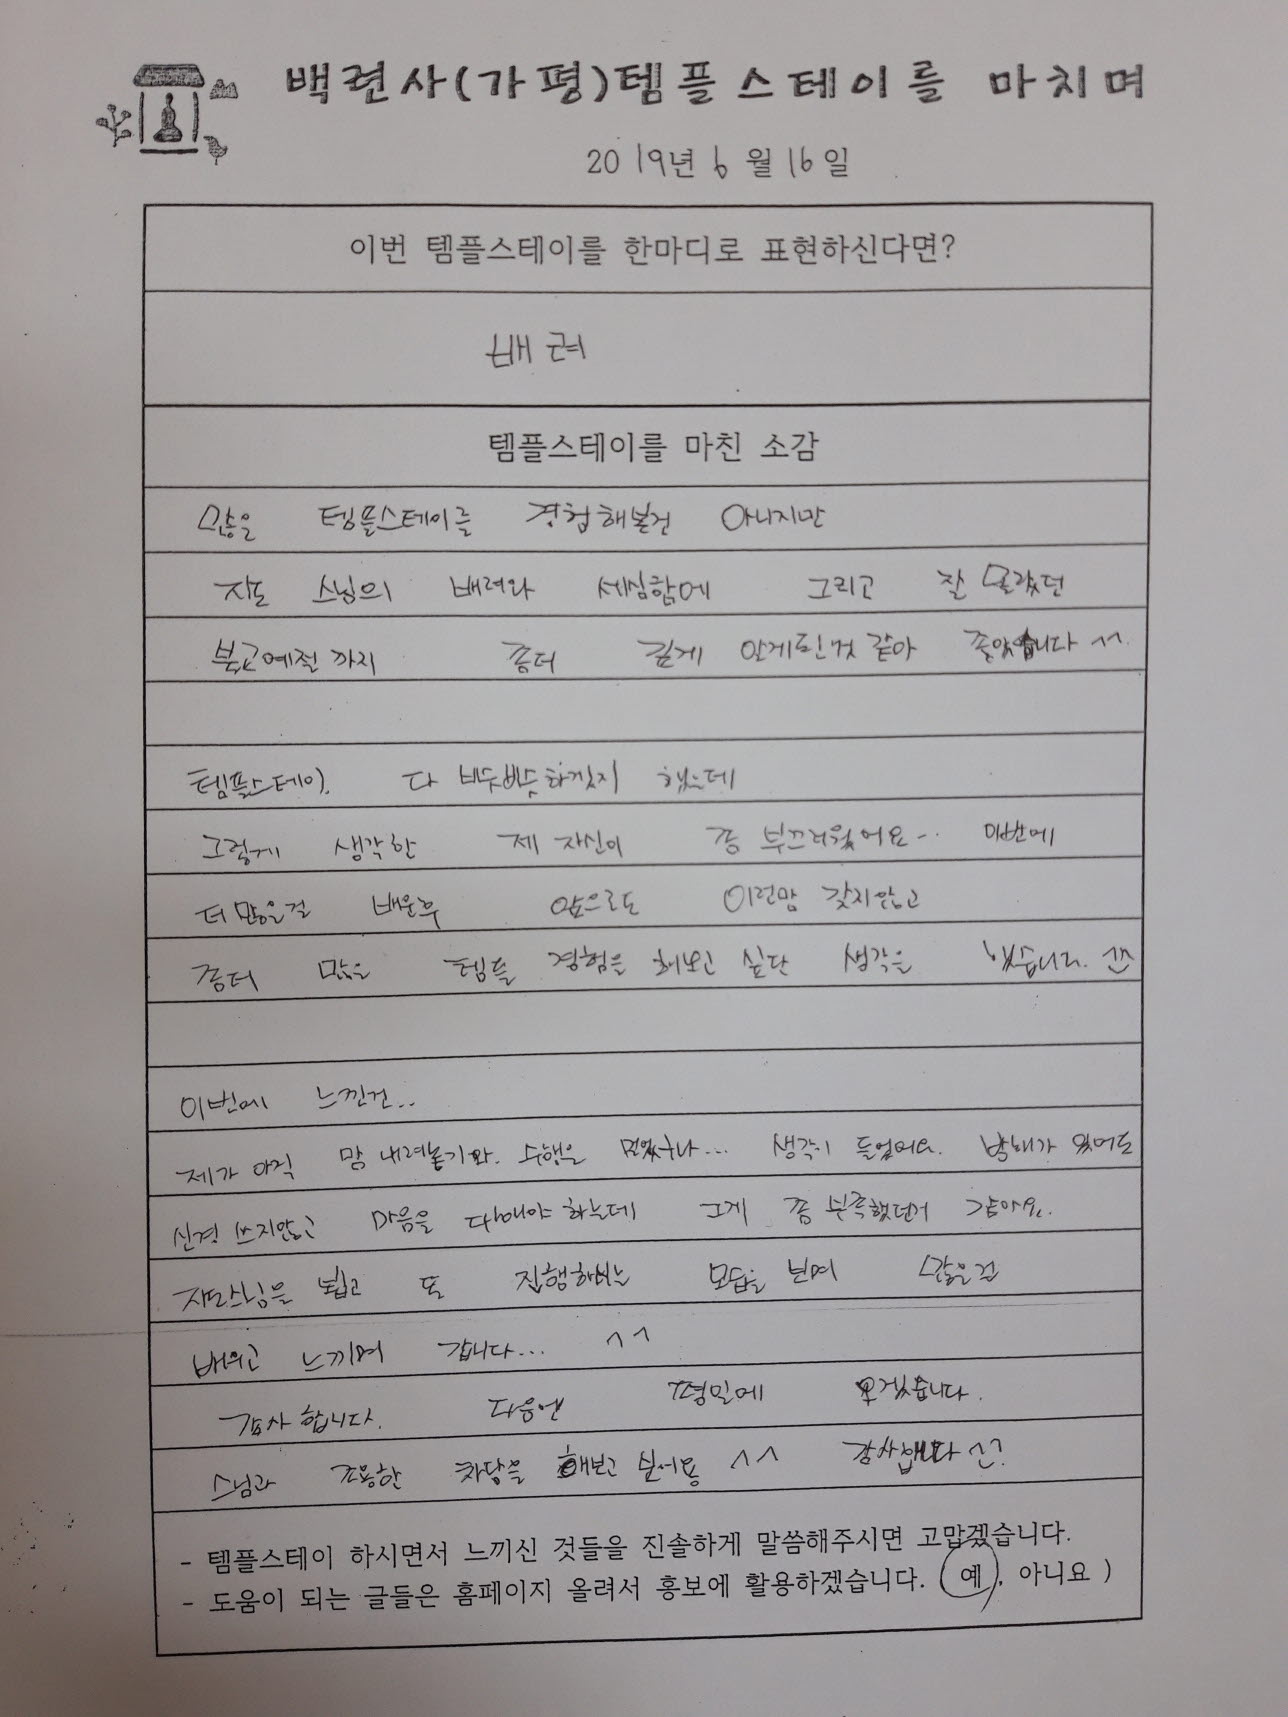 백련사(가평)템플스테이를 마치며
2019년 6월 16일
이번 템플스테이를 한마디로 표현하신다면?
배려
템플스테이를 마친 소감
많은 템플스테이를 경험해본건 아니지만
지도 스님의 배려와 세심함에 그리고 잘 몰랐던
불교예절까지 좀더 깊게 알게된것 같아 좋았습니다 ^^.
템플스테이. 다 비슷비슷하겠지 했는데
그렇게 생각한 제 자신이 좀 부끄러웠어요.. 이번에
더 많은걸 배운후 앞으로도 이런맘 갖지않고
좀더 많은 템플 경험을 해보고 싶단 생각을 했습니다.
이번에 느낀건..
제가 아직 맘 내려놓기와. 수행을 멀었구나... 생각이 들었어요. 방해가 있어도
신경 쓰지않고 마음을 다해야 하는데 그게 좀 부족했던거 같아요.
지도스님을 뵙고 또 집행하시는 모습을 보며 많은걸
배우고 느끼며 갑니다... ^^
감사합니다. 다음엔 평일에 오겠습니다.
스님과 조용한 차담을 해보고 싶어용 ^^ 감사합니다
- 템플스테이 하시면서 느끼신 것들을 진솔하게 말씀해주시면 고맙겠습니다.
- 도움이 되는 글들은 홈페이지 올려서 홍보에 활용하겠습니다. ( 예 , 아니요 )